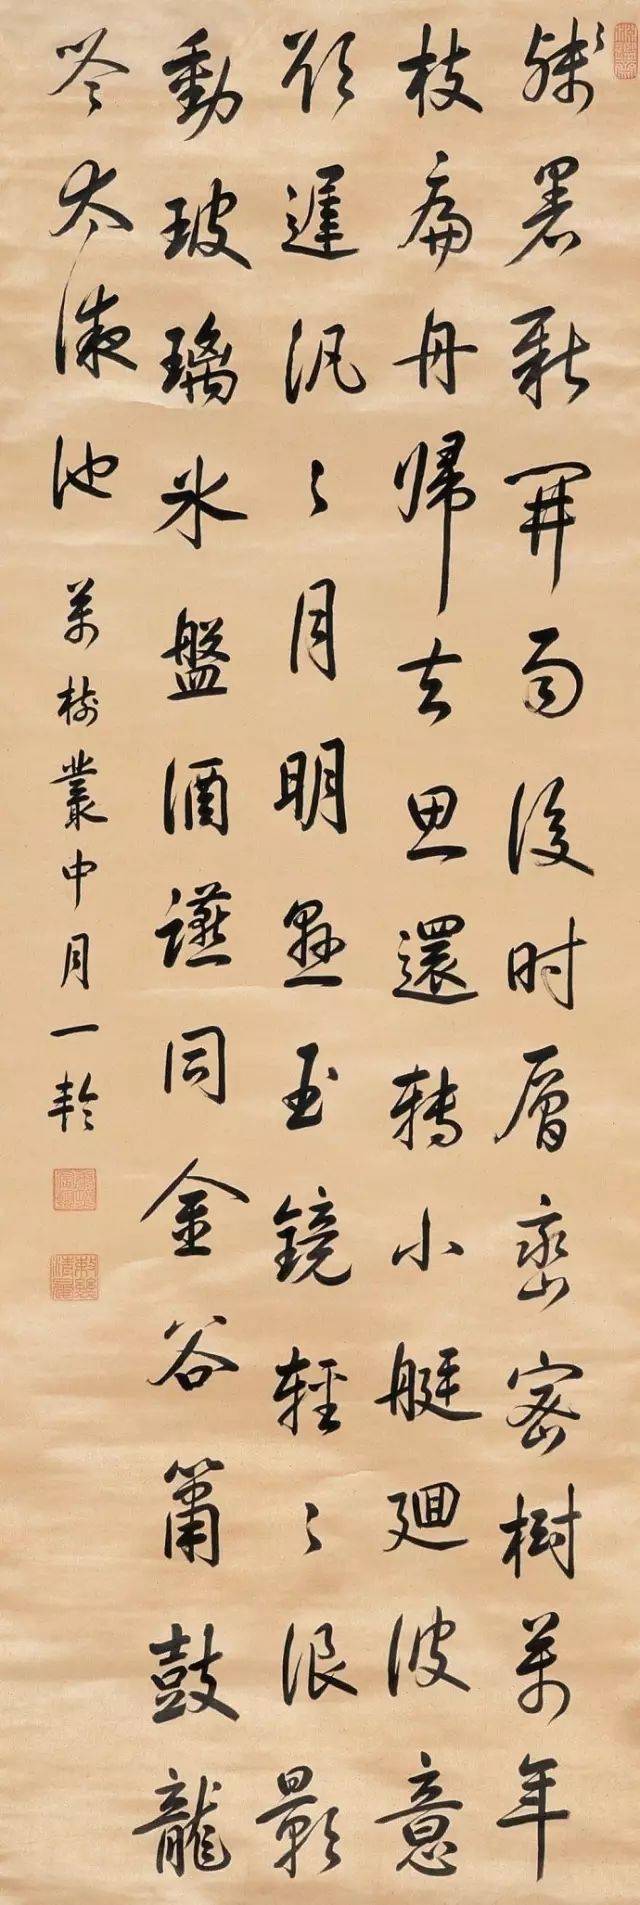 殘暑新開雨後时層巒密樹萬年
枝扁舟歸去思還轉小艇廻波意
欲遲汎〻月明懸玉鏡輕〻浪影
動玻璃氷盤酒讌同金谷簫鼓龍
吟太液池 萬樹叢中月一輪